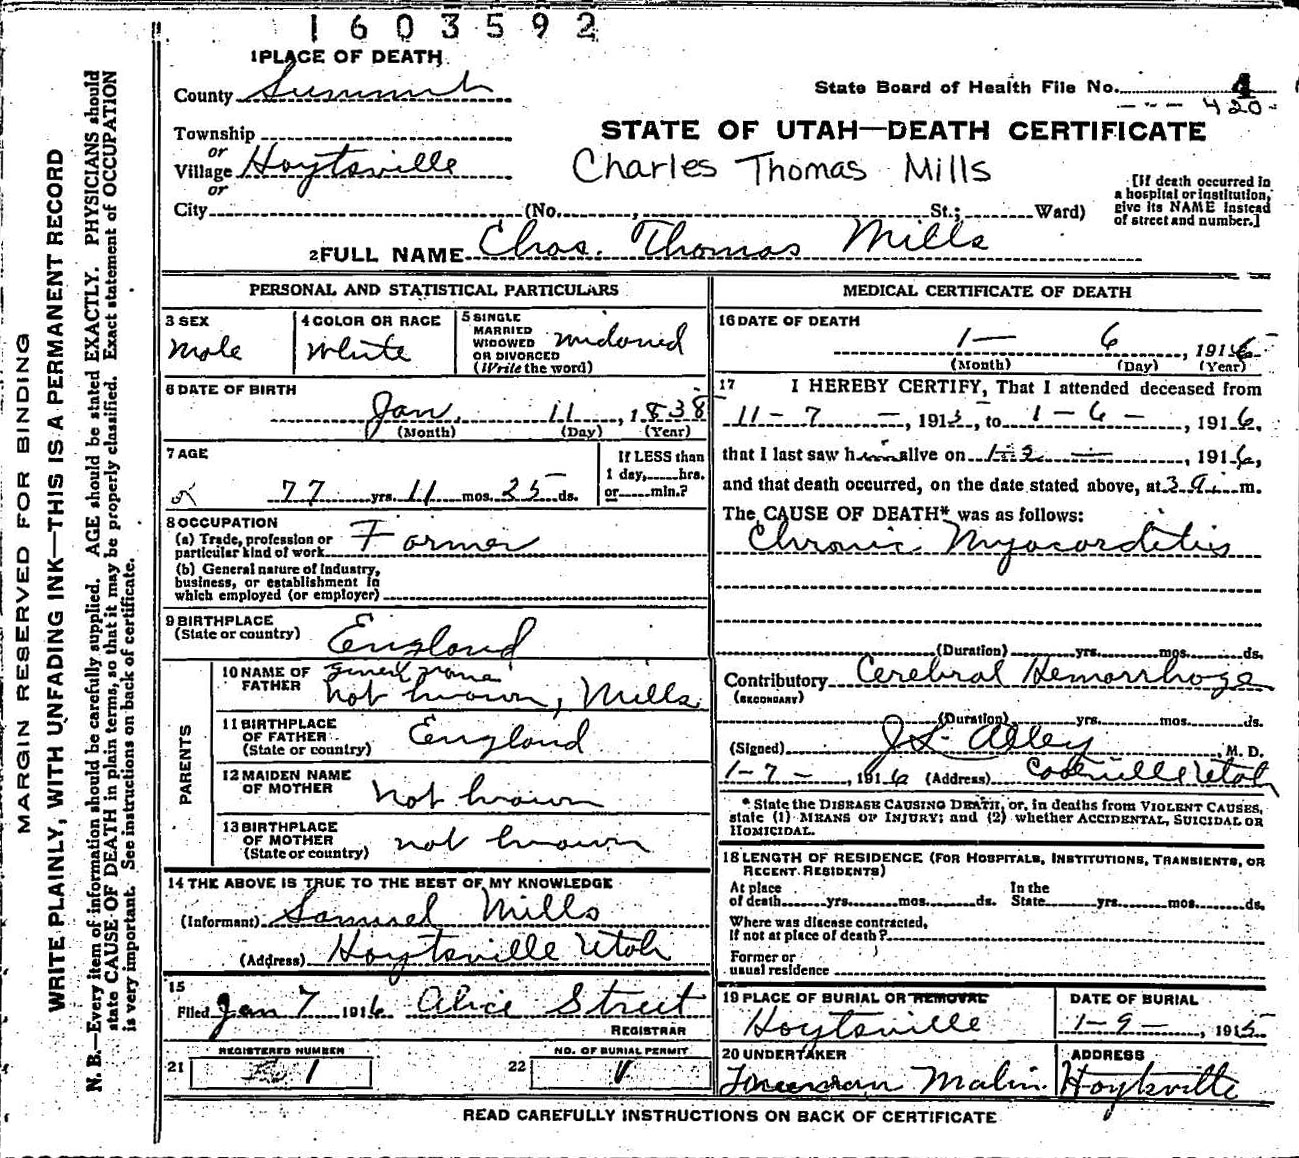 1603592
1 PLACE OF DEATH
County Summit
State Board of Health File No. 4
420
Township
or
Village Hoytsville
or
City (No. , St.; Ward)
STATE OF UTAH—DEATH CERTIFICATE
Charles Thomas Mills
[If death occurred in
a hospital or institution,
give its NAME instead
of street and number.]
2 FULL NAME Chas. Thomas Mills
PERSONAL AND STATISTICAL PARTICULARS
3 SEX
Male
4 COLOR OR RACE
White
5 SINGLE
MARRIED
WIDOWED
OR DIVORCED
(Write the word)
Widowed
6 DATE OF BIRTH
Jan. 11, 1838
(Month) (Day) (Year)
7 AGE
77 yrs. 11 mos. 25 ds.
If LESS than
1 day, hrs.
or min.?
8 OCCUPATION
(a) Trade, profession or
particular kind of work Farmer
(b) General nature of industry,
business, or establishment in
which employed (or employer)
9 BIRTHPLACE
(State or country) England
PARENTS
10 NAME OF
FATHER
given name
not known, Mills
11 BIRTHPLACE
OF FATHER
(State or country) England
12 MAIDEN NAME
OF MOTHER not known
13 BIRTHPLACE
OF MOTHER
(State or country) not known
14 THE ABOVE IS TRUE TO THE BEST OF MY KNOWLEDGE
(Informant) Samuel Mills
(Address) Hoytsville Utah
15
Filed Jan 7 1916 Alice Street
REGISTRAR
21 REGISTERED NUMBER 1
22 NO. OF BURIAL PERMIT
MEDICAL CERTIFICATE OF DEATH
16 DATE OF DEATH
1— 6, 1916
(Month) (Day) (Year)
17 I HEREBY CERTIFY, That I attended deceased from
11-7-, 1915, to 1-6-, 1916,
that I last saw him alive on , 1916,
and that death occurred, on the date stated above, at 3 a. m.
The CAUSE OF DEATH* was as follows:
Chronic Myocarditis
(Duration) yrs. mos. ds.
Contributory Cerebral Hemorrhage
(SECONDARY)
(Duration) yrs. mos. ds.
(Signed) J L Alley, M. D.
1-7-, 1916 (Address) Coalville Utah
* State the DISEASE CAUSING DEATH, or, in deaths from VIOLENT CAUSES,
state (1) MEANS OF INJURY; and (2) whether ACCIDENTAL, SUICIDAL OR
HOMICIDAL.
18 LENGTH OF RESIDENCE (FOR HOSPITALS, INSTITUTIONS, TRANSIENTS, OR
RECENT RESIDENTS)
At place
of death yrs. mos. ds.
In the
State yrs. mos. ds.
Where was disease contracted,
If not at place of death?
Former or
usual residence
19 PLACE OF BURIAL OR REMOVAL
Hoytsville
DATE OF BURIAL
1-9-, 1915
20 UNDERTAKER
Malin
ADDRESS
Hoytsville
READ CAREFULLY INSTRUCTIONS ON BACK OF CERTIFICATE
MARGIN RESERVED FOR BINDING
WRITE PLAINLY, WITH UNFADING INK—THIS IS A PERMANENT RECORD
N. B.—Every item of information should be carefully supplied. AGE should be stated EXACTLY. PHYSICIANS should
state CAUSE OF DEATH in plain terms, so that it may be properly classified. Exact statement of OCCUPATION
is very important. See instructions on back of certificate.